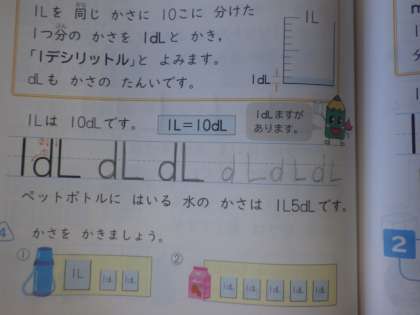 1Lを 同じ かさに 10こに 分けた
1つ分の かさを 1dLと かき、
「1デシリットル」と よみます。
dLも かさの たんいです。
1L
1dL
1Lは 10dLです。
1L=10dL
1dLますが
あります。
1dL dL dL dL dL dL
ペットボトルに はいる 水の かさは 1L5dLです。
4 かさを かきましょう。
① 1L 1dL 1dL
② 1dL 1dL 1dL 1dL 1dL
2